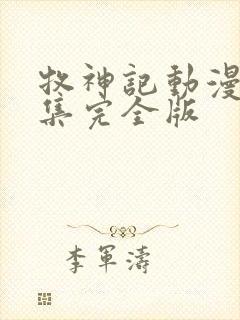 牧神記動漫
集完全版
李軍濤